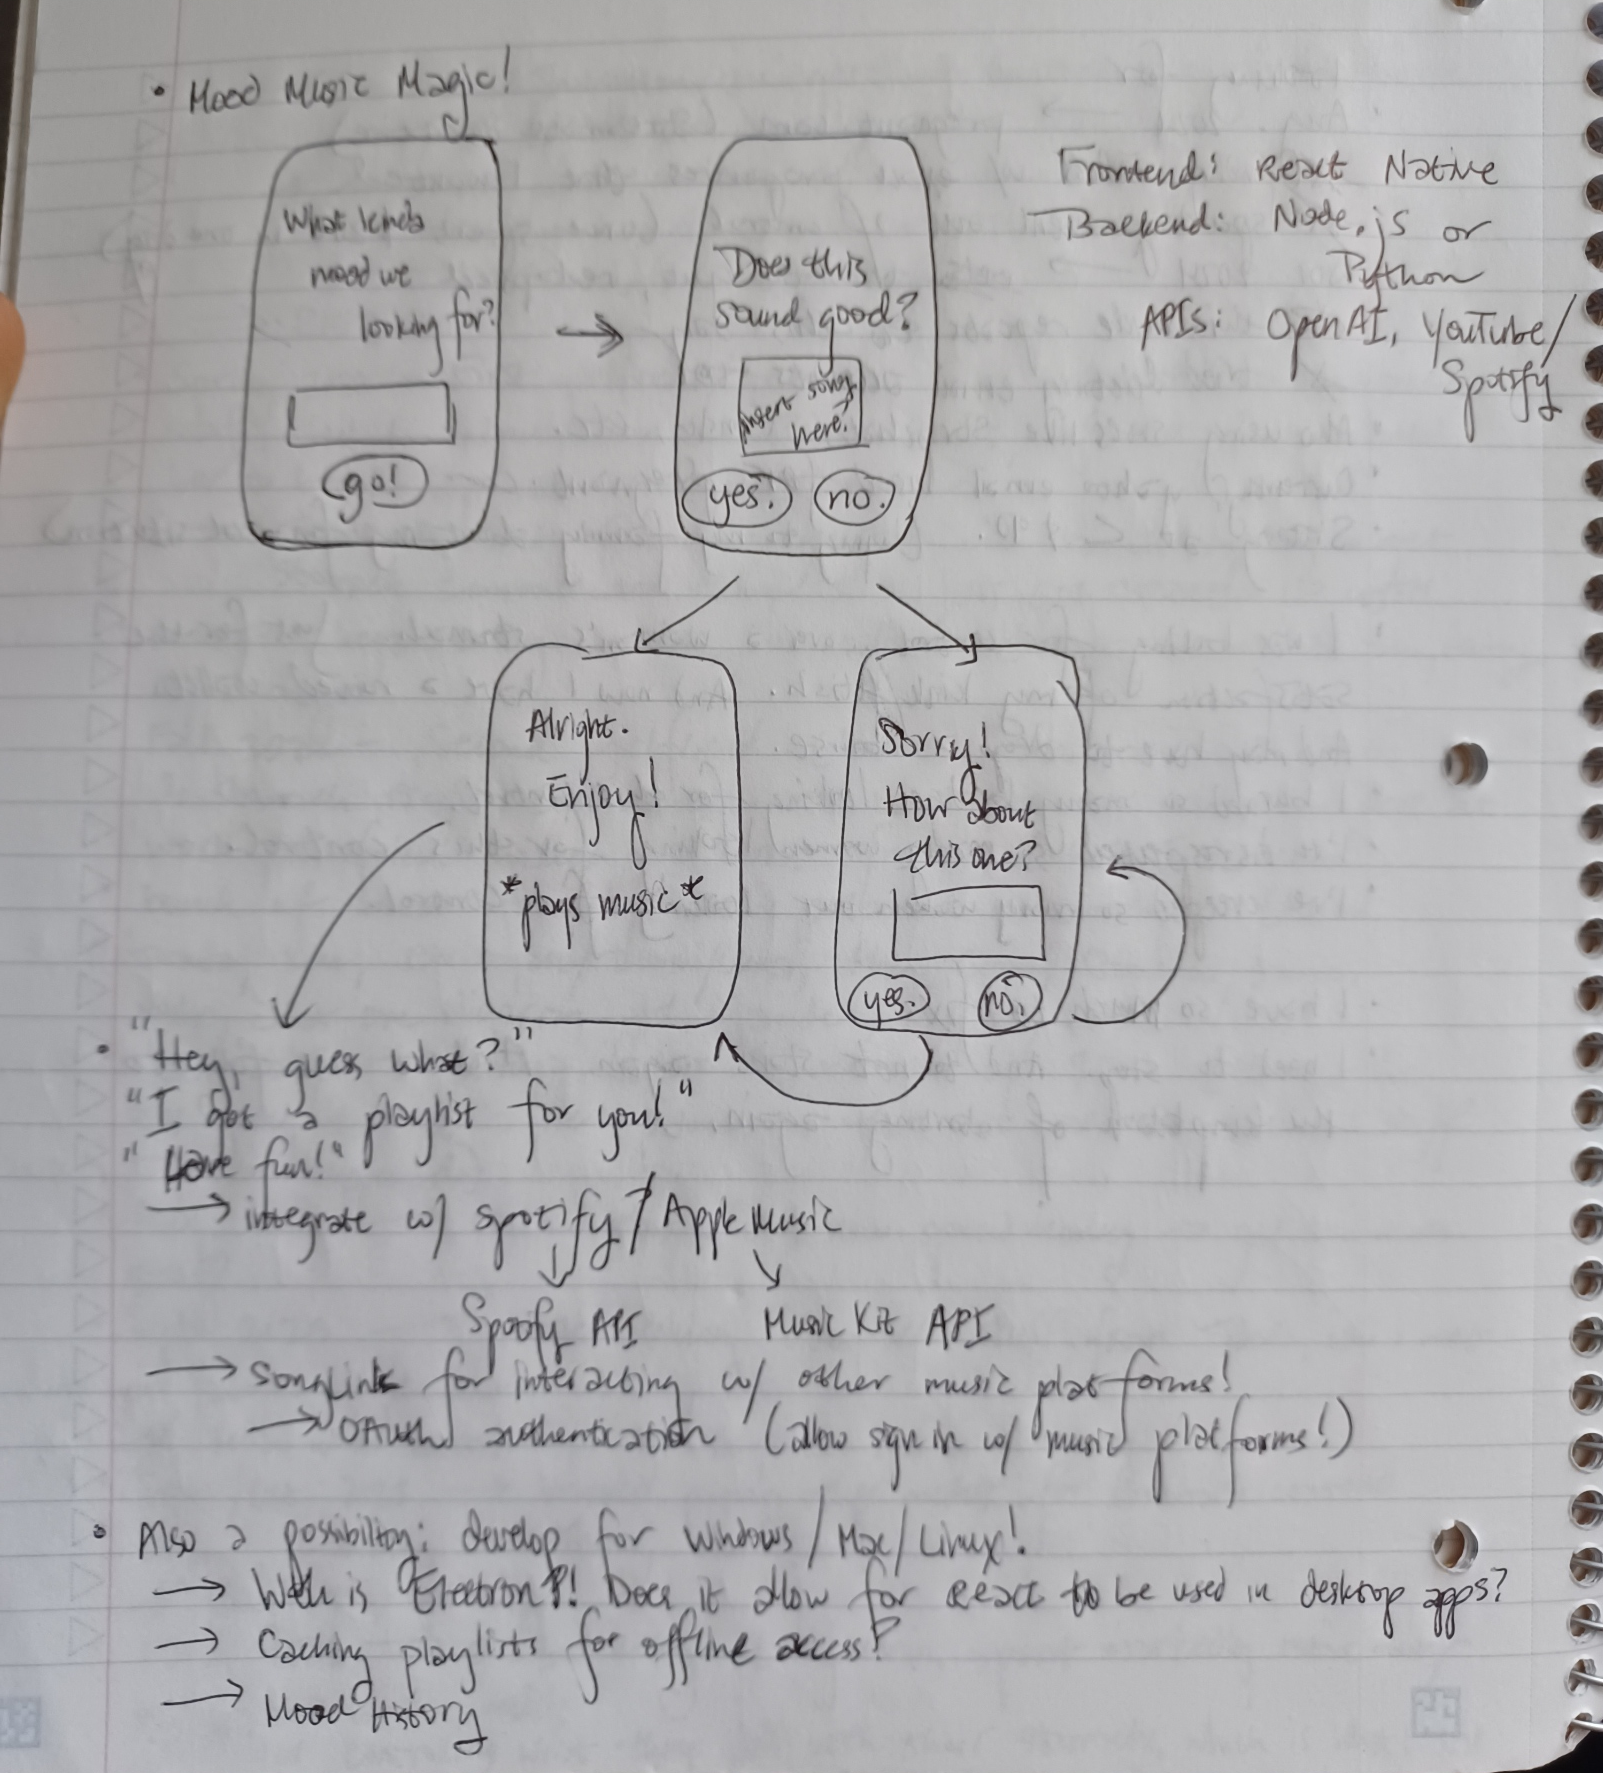 • Mood Music Magic!
What kinda
mood we
looking for?
go!
Does this
sound good?
insert song
here!
yes! no.
Frontend: React Native
Backend: Node.js or
Python
APIs: OpenAI, YouTube/
Spotify
Alright.
Enjoy!
*plays music*
Sorry!
How about
this one?
yes. no.
• "Hey, guess what?"
"I got a playlist for you!"
"Have fun!"
→ integrate w/ spotify / Apple Music
Spotify API Music Kit API
→ SongLink for interacting w/ other music platforms!
→ OAuth authentication (allow sign in w/ music platforms!)
• Also a possibility: develop for Windows/Mac/Linux!
→ is Electron?! Does it allow for React to be used in desktop apps?
→ Caching playlists for offline access?
→ Mood History